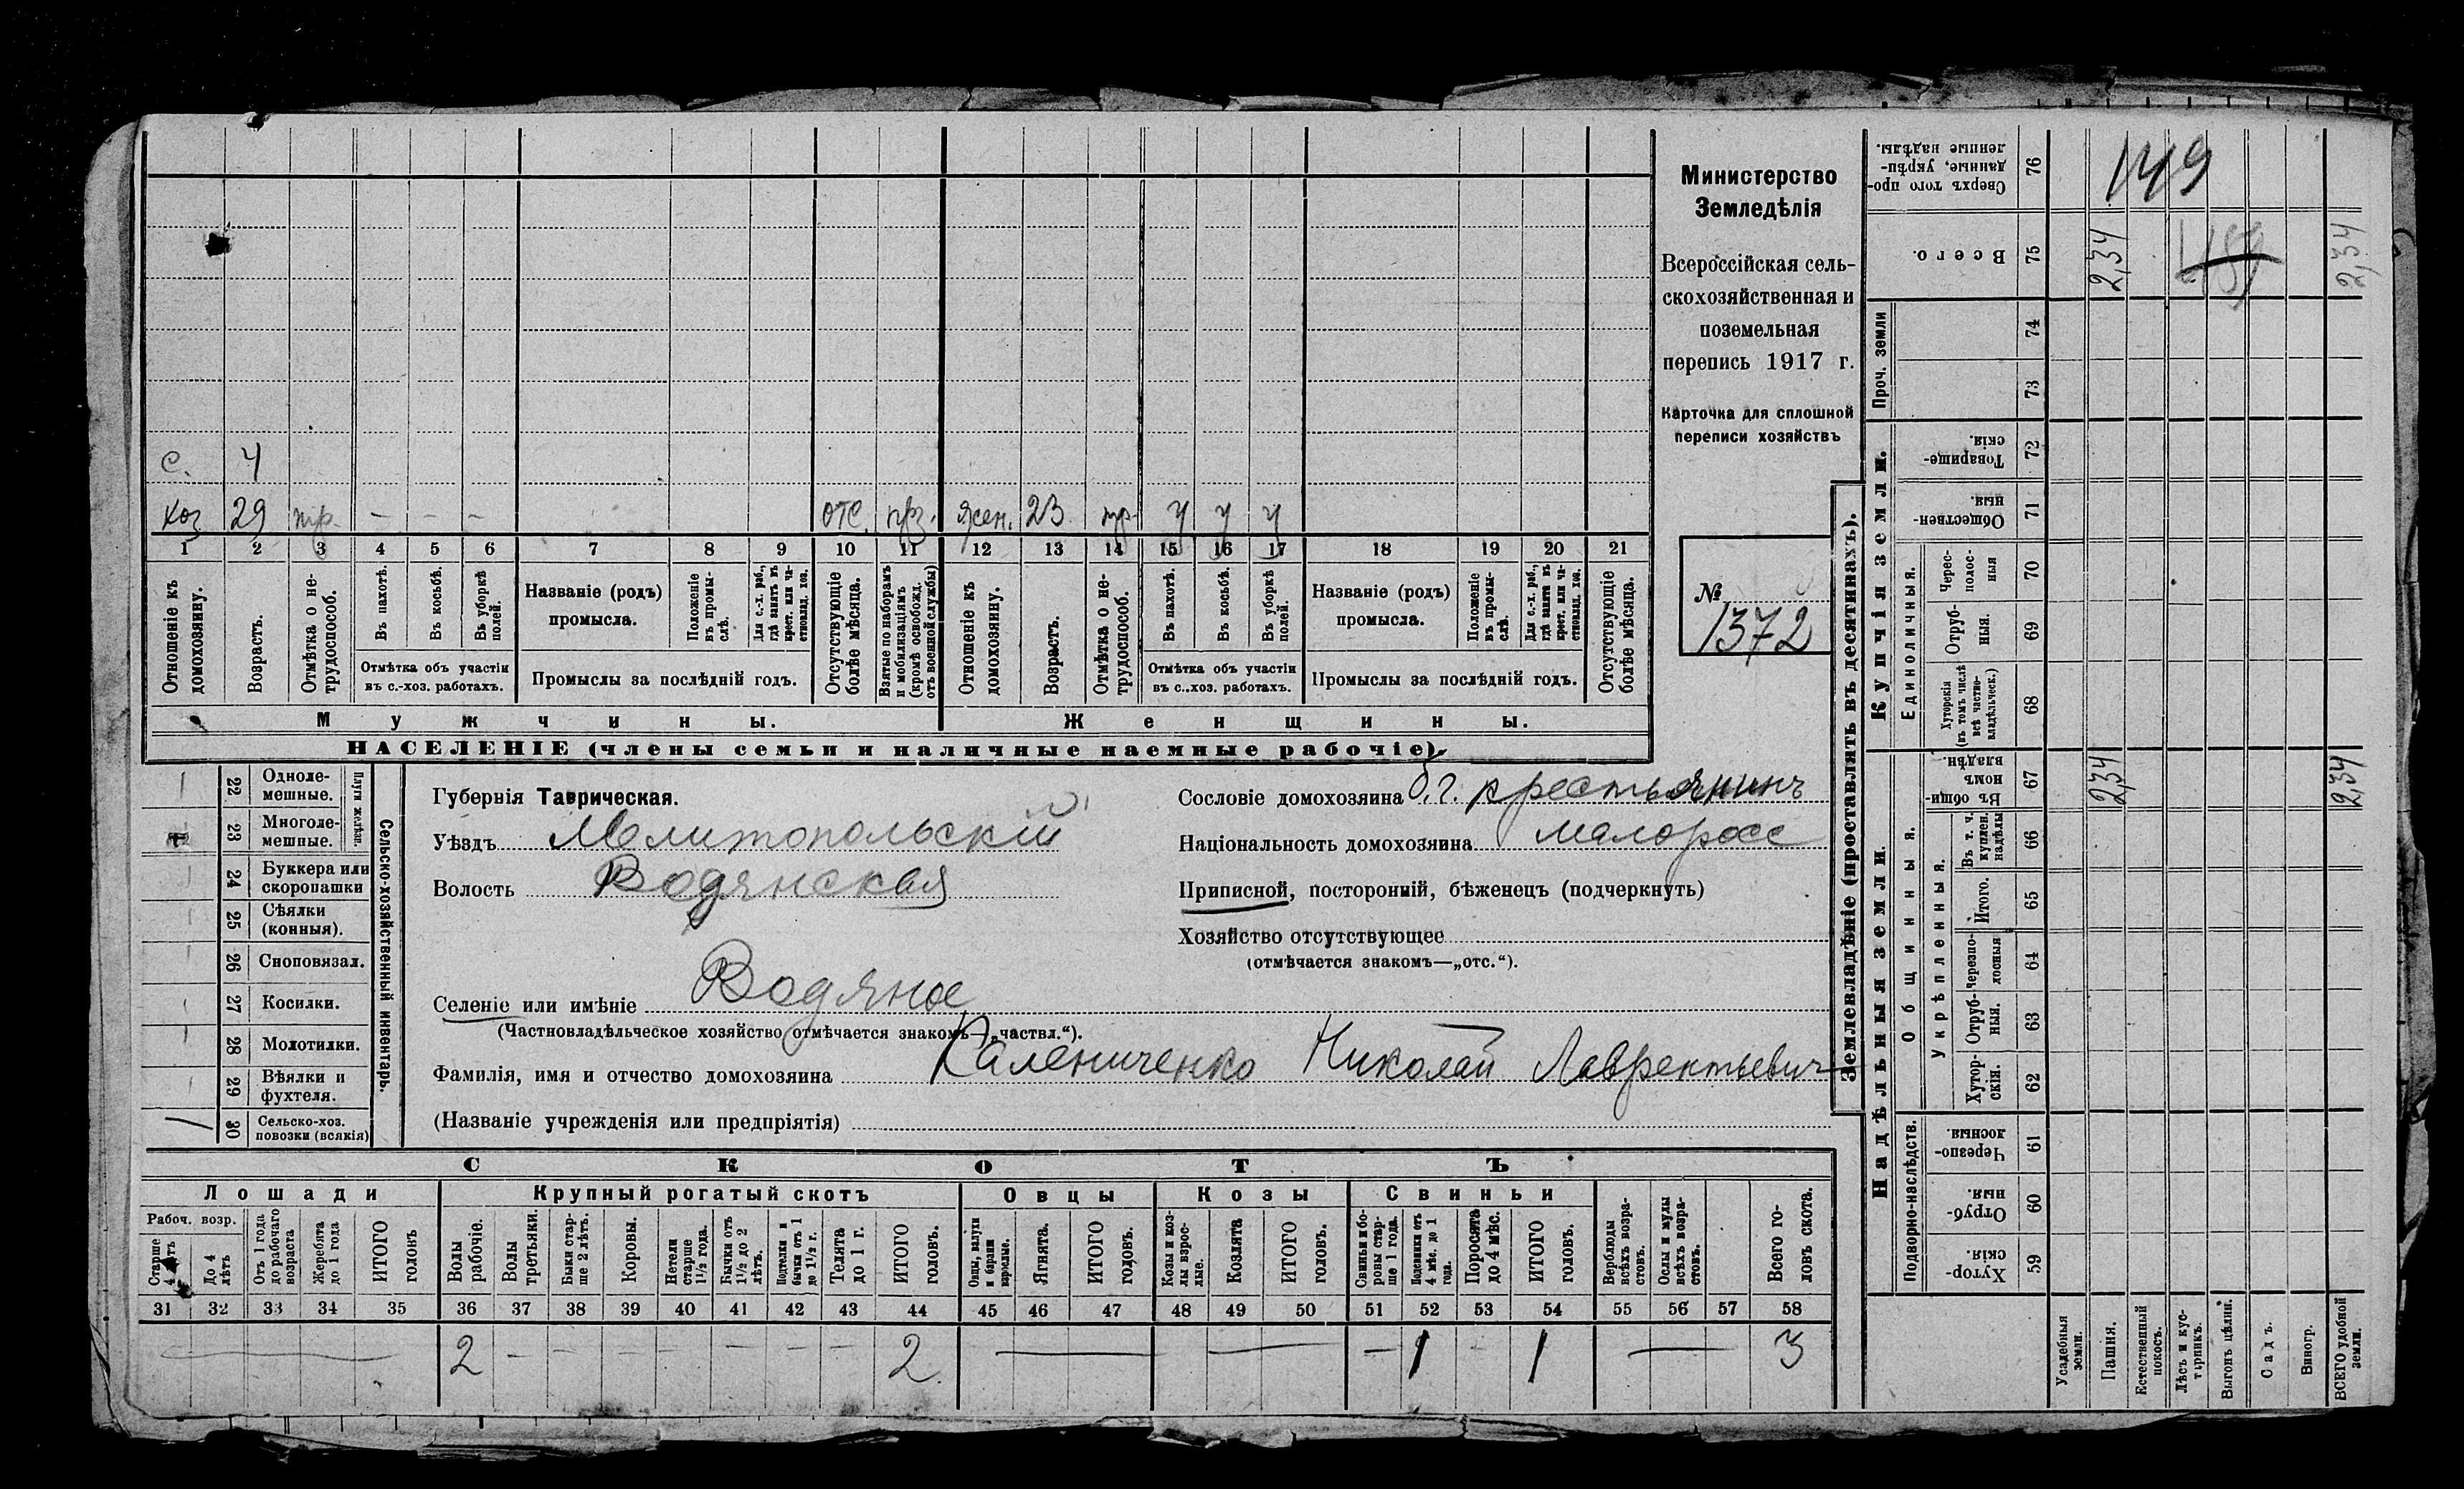 Министерство
Земледѣлія
Всероссійская сель-
скохозяйственная и
поземельная
перепись 1917 г.
Карточка для сплошной
переписи хозяйствъ
№
1372
с. 4
хоз 29 тр. – – – отс. прз. жен. 23 тр. у у у
1 2 3 4 5 6 7 8 9 10 11 12 13 14 15 16 17 18 19 20 21
Отношеніе къ домохозяину.
Возрастъ.
Отмѣтка о не-трудоспособ.
Въ пахотѣ.
Въ косьбѣ.
Въ уборкѣ полей.
Отмѣтка объ участіи
въ с.-хоз. работахъ.
Названіе (родъ)
промысла.
Положеніе въ промы-слѣ.
Для с.-х. раб., гдѣ занятъ въ крест. или ча-стновлад. хоз.
Промыслы за послѣдній годъ.
Отсутствующіе болѣе мѣсяца.
Взятые по наборамъ и мобилизаціямъ (кромѣ освобожд. отъ военной службы)
Отношеніе къ домохозяину.
Возрастъ.
Отмѣтка о не-трудоспособ.
Въ пахотѣ.
Въ косьбѣ.
Въ уборкѣ полей.
Отмѣтка объ участіи
въ с.-хоз. работахъ.
Названіе (родъ)
промысла.
Положеніе въ промы-слѣ.
Для с.-х. раб., гдѣ занята въ крест. или ча-стновлад. хоз.
Промыслы за послѣдній годъ.
Отсутствующіе болѣе мѣсяца.
Мужчины. Женщины.
НАСЕЛЕНІЕ (члены семьи и наличные наемные рабочіе).
22 Одноле-мешные.
23 Многоле-мешные.
Плуги желѣзн.
24 Буккера или скоропашки
25 Сѣялки (конныя).
26 Сноповязал.
27 Косилки.
28 Молотилки.
29 Вѣялки и фухтеля.
30 Сельско-хоз. повозки (всякія)
Сельско-хозяйственный инвентарь.
Губернія Таврическая.
Уѣздъ Мелитопольскій
Волость Водянская
Селеніе или имѣніе Водяное
(Частновладѣльческое хозяйство отмѣчается знакомъ—„частвл.“).
Фамилія, имя и отчество домохозяина Калениченко Николай Лаврентьевич
(Названіе учрежденія или предпріятія)
Сословіе домохозяина б. г. крестьянинъ
Національность домохозяина малоросс
Приписной, посторонній, бѣженецъ (подчеркнуть)
Хозяйство отсутствующее
(отмѣчается знакомъ—„отс.“).
СКОТЪ
Лошади Крупный рогатый скотъ Овцы Козы Свиньи
Рабоч. возр.
Старше 4 лѣтъ
До 4 лѣтъ
Отъ 1 года до рабочаго возраста
Жеребята до 1 года
ИТОГО головъ
Волы рабочіе.
Волы третьяки.
Быки стар-ше 2 лѣтъ.
Коровы.
Нетели старше 1½ года.
Бычки отъ 1½ до 2 лѣтъ.
Подтелки и бычки отъ 1 до 1½ г.
Телята до 1 г.
ИТОГО головъ.
Овцы, валухи и бараны взрослые.
Ягнята.
ИТОГО головъ.
Козы и коз-лы взрос-лые.
Козлята
ИТОГО головъ.
Свиньи и бо-ровы стар-ше 1 года.
Подсвинки отъ 4 мѣс. до 1 года.
Поросята до 4 мѣс.
ИТОГО головъ.
Верблюды всѣхъ возра-стовъ.
Ослы и мулы всѣхъ возра-стовъ.
Всего го-ловъ скота.
31 32 33 34 35 36 37 38 39 40 41 42 43 44 45 46 47 48 49 50 51 52 53 54 55 56 57 58
2 – – – – – – – 2 – 1 – 1 3
Землевладѣніе (проставлять въ десятинахъ).
Надѣльныя земли. Купчія земли. Проч. земли
Общинныя.
Укрѣпленныя.
Единоличныя.
Подворно-наслѣдств.
Сверхъ того про-данные, укрѣп-ленные надѣлы. 76
149
Всего. 75 2,34 2,34
459
74
73
Товарище-скія. 72
Обществен-ныя. 71
Черес-полос-ныя 70
Отруб-ныя. 69
Хуторскія (въ томъ числѣ всѣ частно-владѣльческ.) 68
Въ общин-номъ владѣн. 67 2,34 2,34
Въ т. ч. куплен. надѣлы 66
Итого. 65
Черезпо-лосныя 64
Отруб-ныя. 63
Хутор-скія. 62
Черезпо-лосныя. 61
Отруб-ныя. 60
Хутор-скія. 59
Усадебныя земли.
Пашня.
Естественный покосъ.
Лѣсъ и кус-тарникъ.
Выгонъ цѣлин.
Садъ.
Виногр.
ВСЕГО удобной земли.